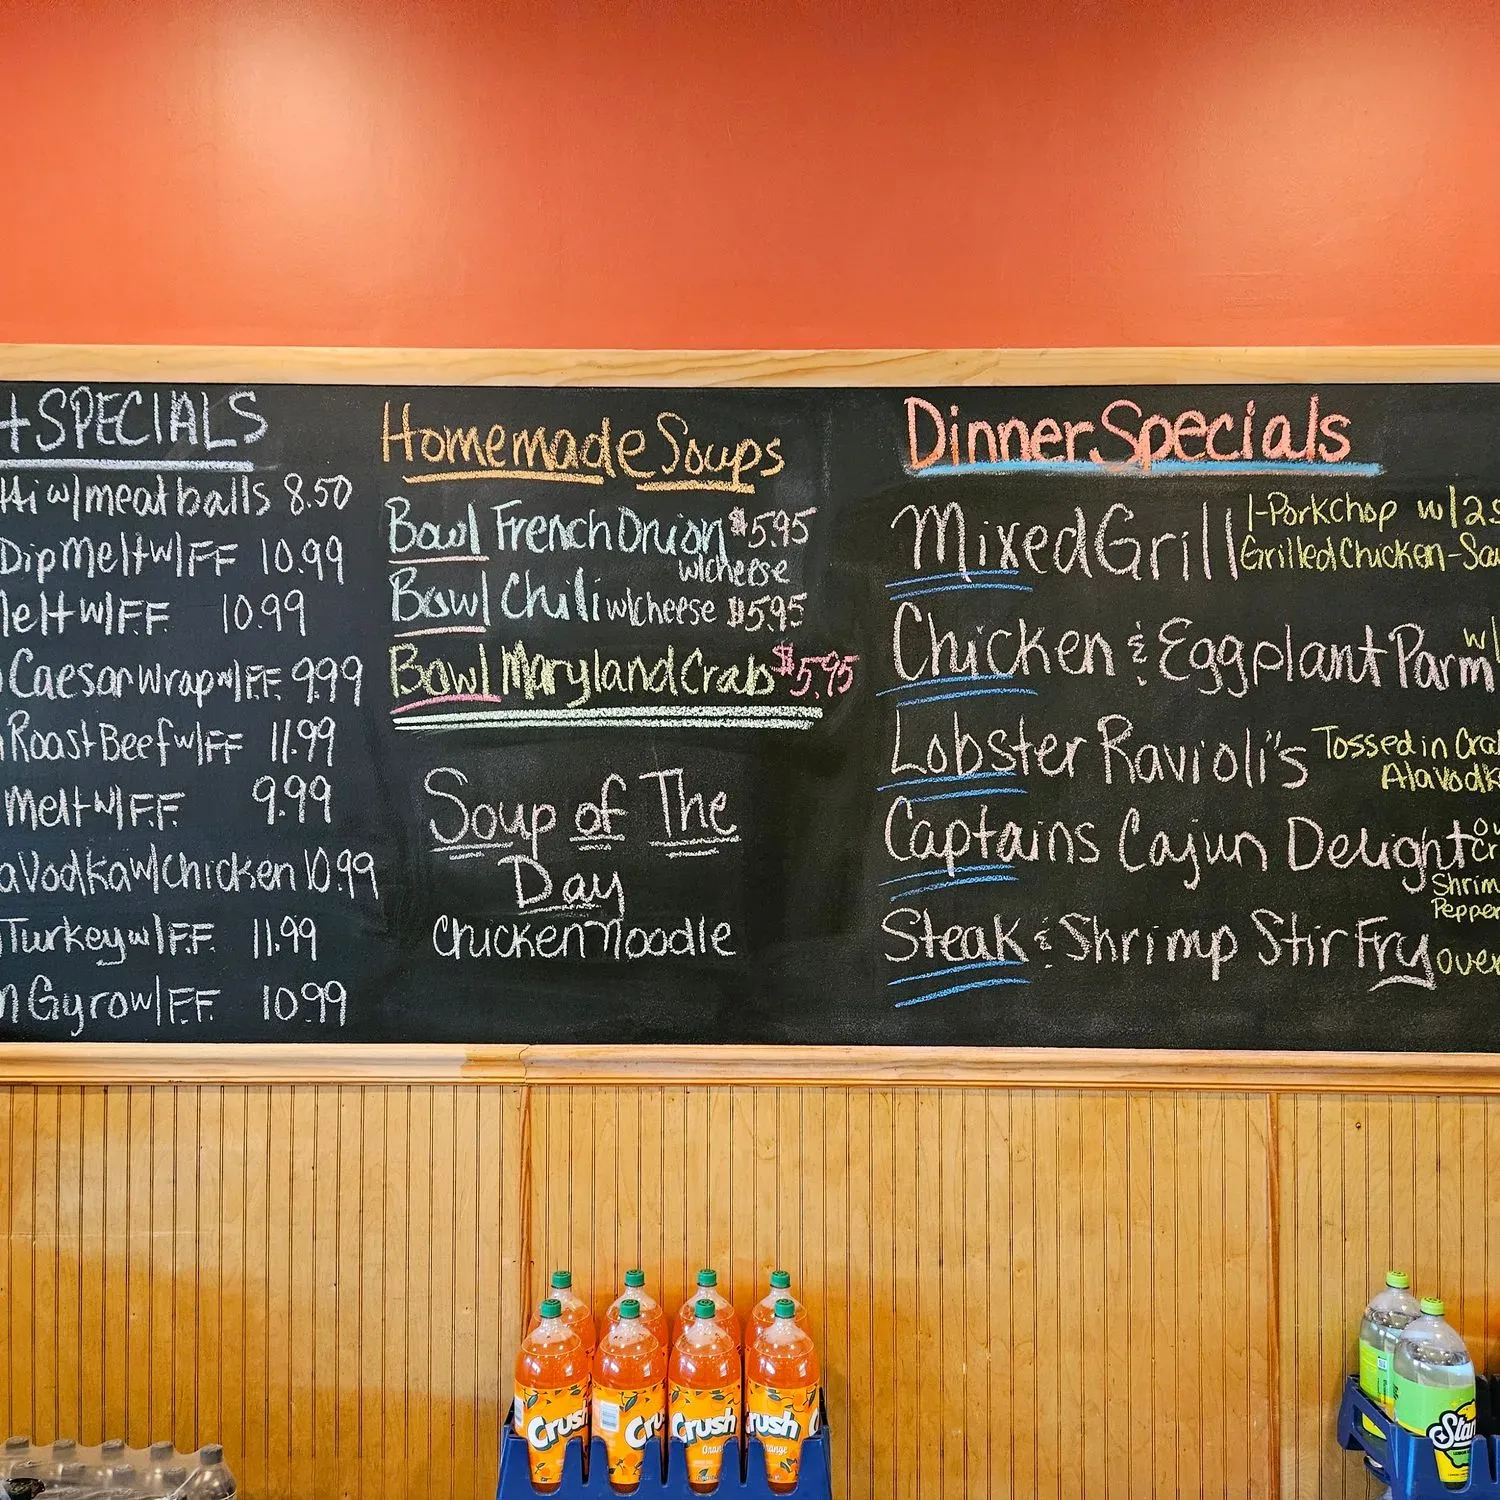 SPECIALS
w/meatballs 8.50
Dip Melt w/FF 10.99
Melt w/F.F. 10.99
Caesar Wrap w/F.F. 9.99
Roast Beef w/FF 11.99
Melt w/F.F. 9.99
Vodka w/Chicken 10.99
Turkey w/F.F. 11.99
Gyro w/F.F. 10.99
Homemade Soups
Bowl French Onion $5.95
w/cheese
Bowl Chili w/cheese $5.95
Bowl Maryland Crab $5.95
Soup of The
Day
Chicken Noodle
Dinner Specials
Mixed Grill 1-Pork Chop w/2
Grilled Chicken-
Chicken & Eggplant Parm w/
Lobster Ravioli's Tossed in
Ala Vodka
Captains Cajun Delight
Shrim
Pepper
Steak & Shrimp Stir Fry over
Crush
Cru
Crush
Oran
rush
range
Star